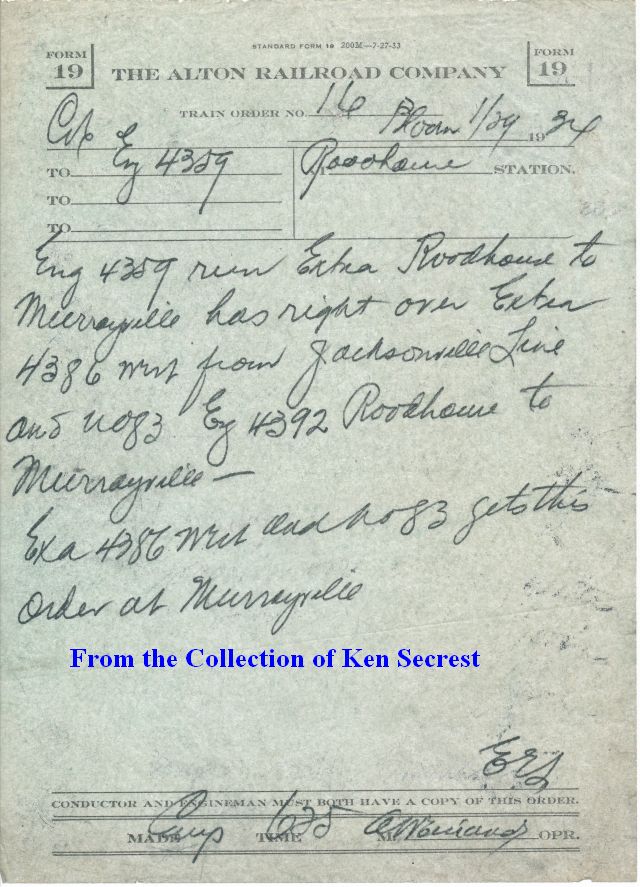 STANDARD FORM 19 200M—7-27-33
FORM 19
THE ALTON RAILROAD COMPANY
FORM 19
TRAIN ORDER NO. 16
Bloom 1/29 1934
C&E
TO Eng 4359
At Roodhouse STATION.
TO
TO
Eng 4359 run Extra Roodhouse to
Murrayville has right over Extra
4386 West from Jacksonville Line
and No 83 Eng 4392 Roodhouse to
Murrayville —
Exa 4386 West and No 83 gets this
Order at Murrayville
From the Collection of Ken Secrest
CONDUCTOR AND ENGINEMAN MUST BOTH HAVE A COPY OF THIS ORDER.
MADE Cmp TIME 635 M. OPR.